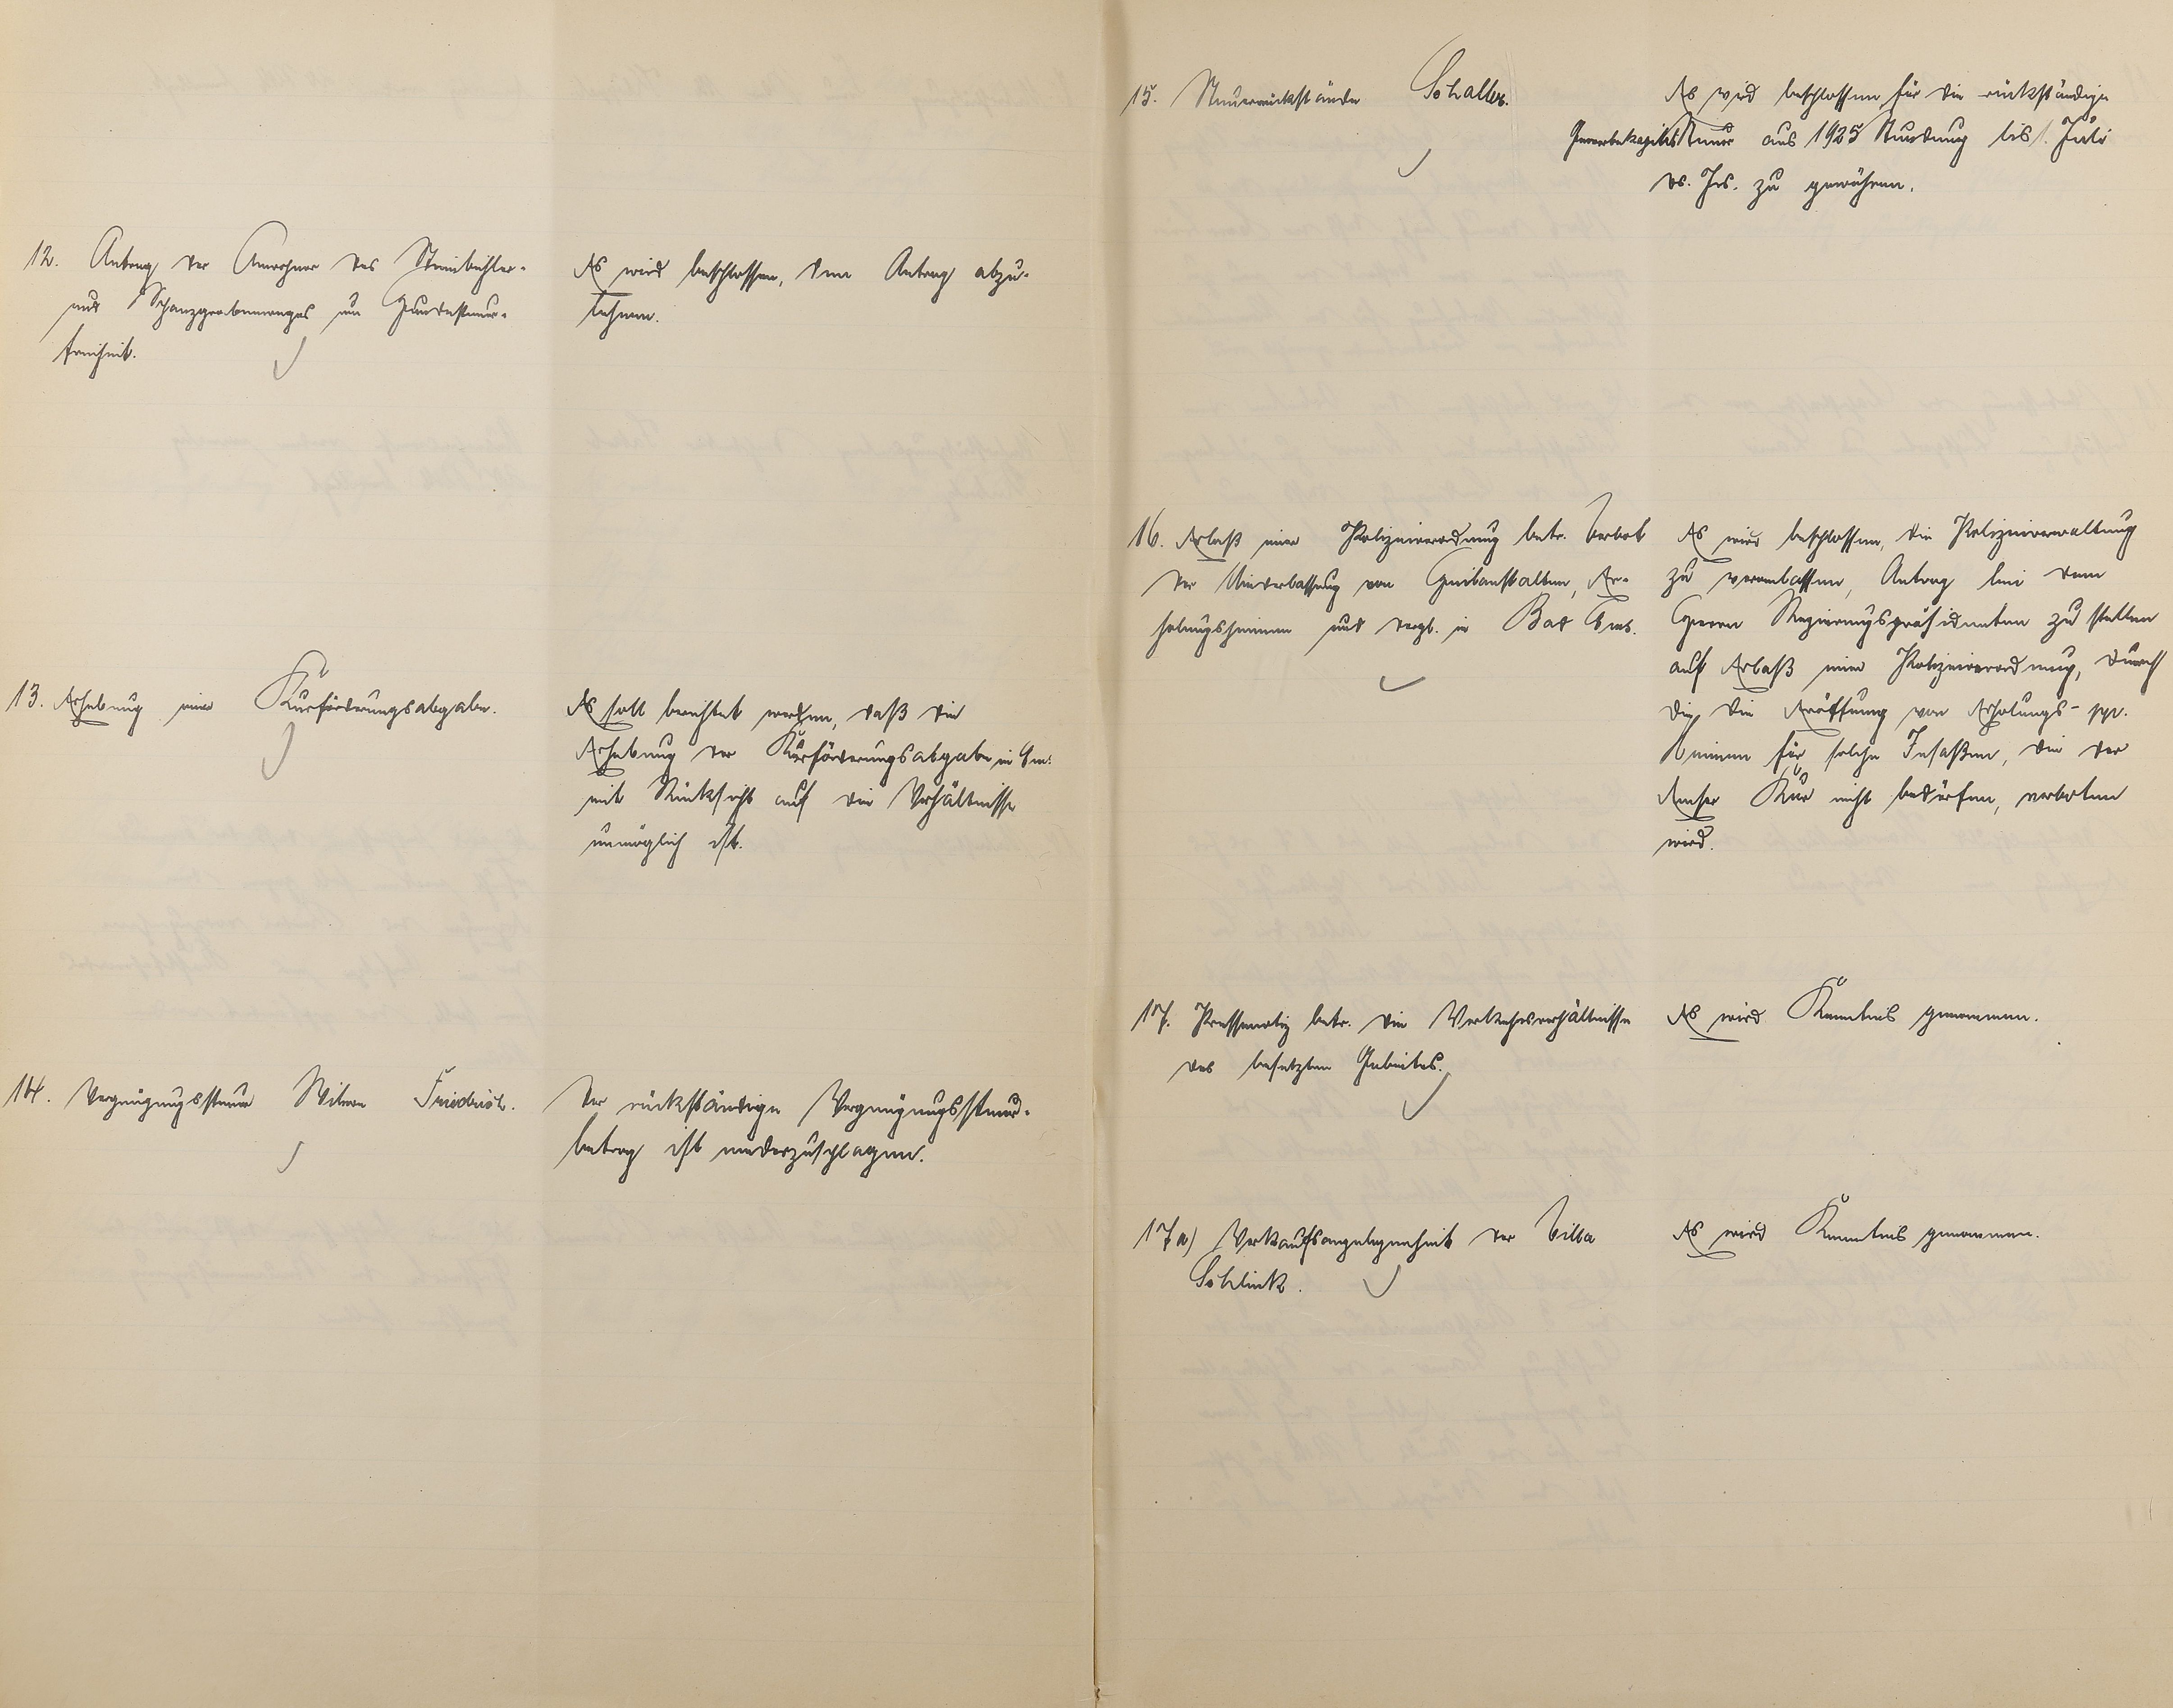 12. Antrag der Anwohner des Steinbühler-
und Schanzgrabenweges um Grundsteuer-
freiheit.
Es wird beschlossen, dem Antrag abzu-
lehnen.
13. Erhebung einer Kurförderungsabgabe.
Es soll berichtet werden, daß die
Erhebung der Kurförderungsabgabe in Ems
mit Rücksicht auf die Verhältnisse
unmöglich ist.
14. Vergnügungssteuer Witwe Friedrich.
Der rückständige Vergnügungssteuer-
betrag ist niederzuschlagen.
15. Steuerrückstände Schaller.
Es wird beschlossen für die rückständige
Gewerbekapitalsteuer aus 1925 Stundung bis 1. Juli
ds. Jrs. zu gewähren.
16. Erlaß einer Polizeiverordnung betr. Verbot
der Niederlassung von Heilanstalten, Er-
holungsheimen und dergl. in Bad Ems.
Es wird beschlossen, die Polizeiverwaltung
zu veranlassen, Antrag bei dem
Herrn Regierungspräsidenten zu stellen
auf Erlaß einer Polizeiverordnung, durch
die die Eröffnung von Erholungs- pp.
heimen für solche Insaßen, die der
Emser Kur nicht bedürfen, verboten
wird.
17. Pressenotiz betr. die Verkehrsverhältnisse
des besetzten Gebietes.
Es wird Kenntnis genommen.
17a) Verkaufsangelegenheit der Villa
Schlink.
Es wird Kenntnis genommen.